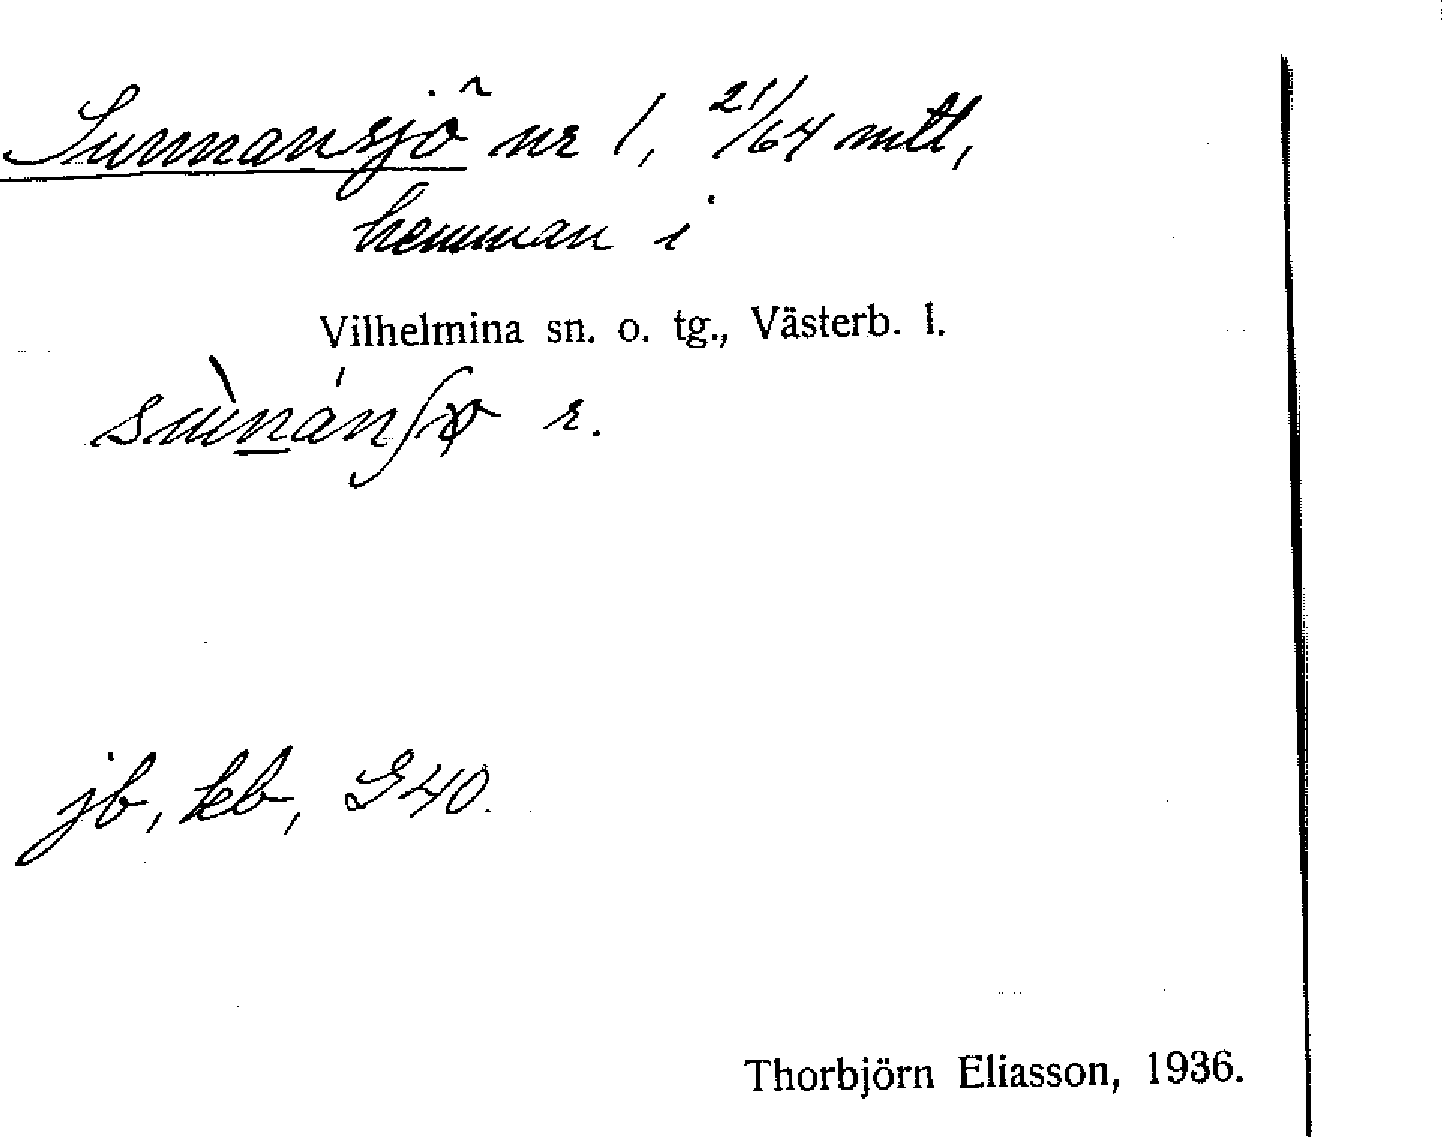 Sunnansjö nr 1, 21/64 mtl,
hemman i
Vilhelmina sn. o. tg., Västerb. l.
sùnánʃø r.
jb, kb, G40.
Thorbjörn Eliasson, 1936.